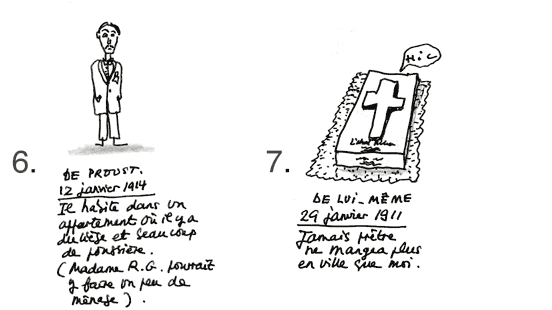 6.
DE PROUST.
12 janvier 1914
Il habite dans un
appartement où il y a
du liège et beaucoup
de poussière.
(Madame R.G. pourrait
y faire un peu de
ménage).
7.
Hic
L'abbé
DE LUI-MÊME
29 janvier 1911
Jamais prêtre
ne mangea plus
en ville que moi.